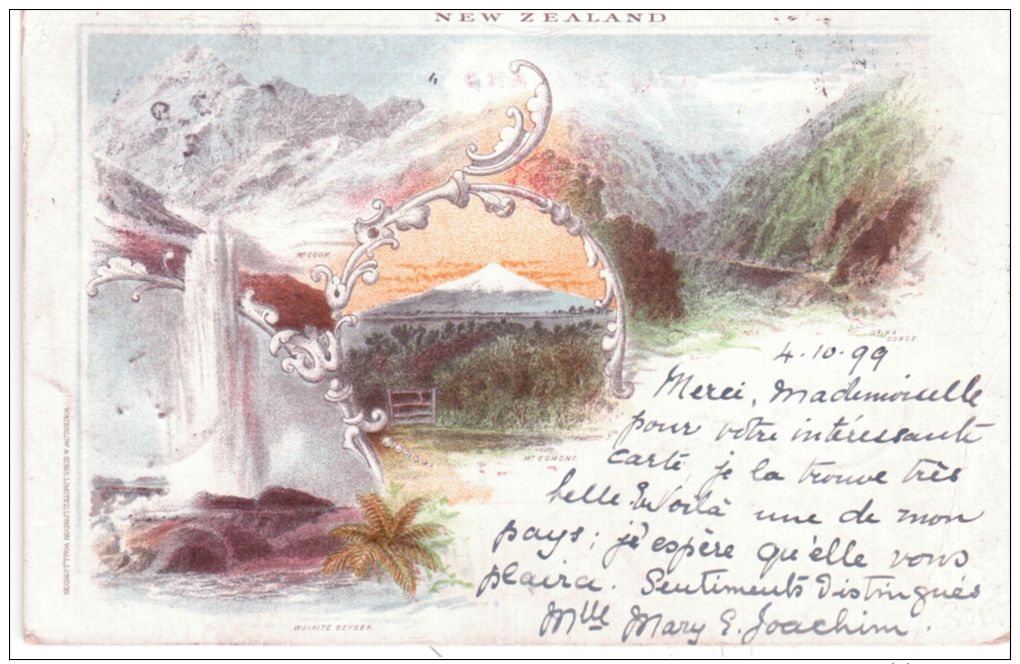 NEW ZEALAND
MT COOK.
OTIRA
GORGE
MT EGMONT.
WAIKITE GEYSER.
WATERLOW & SONS LIMITED, LONDON WALL, LONDON
4.10.99
Merci, Mademoiselle
pour votre intéressante
carte, je la trouve très
belle. Voilà une de mon
pays; j'espère qu'elle vous
plaira. Sentiments Distingués
Mlle Mary E. Joachim.